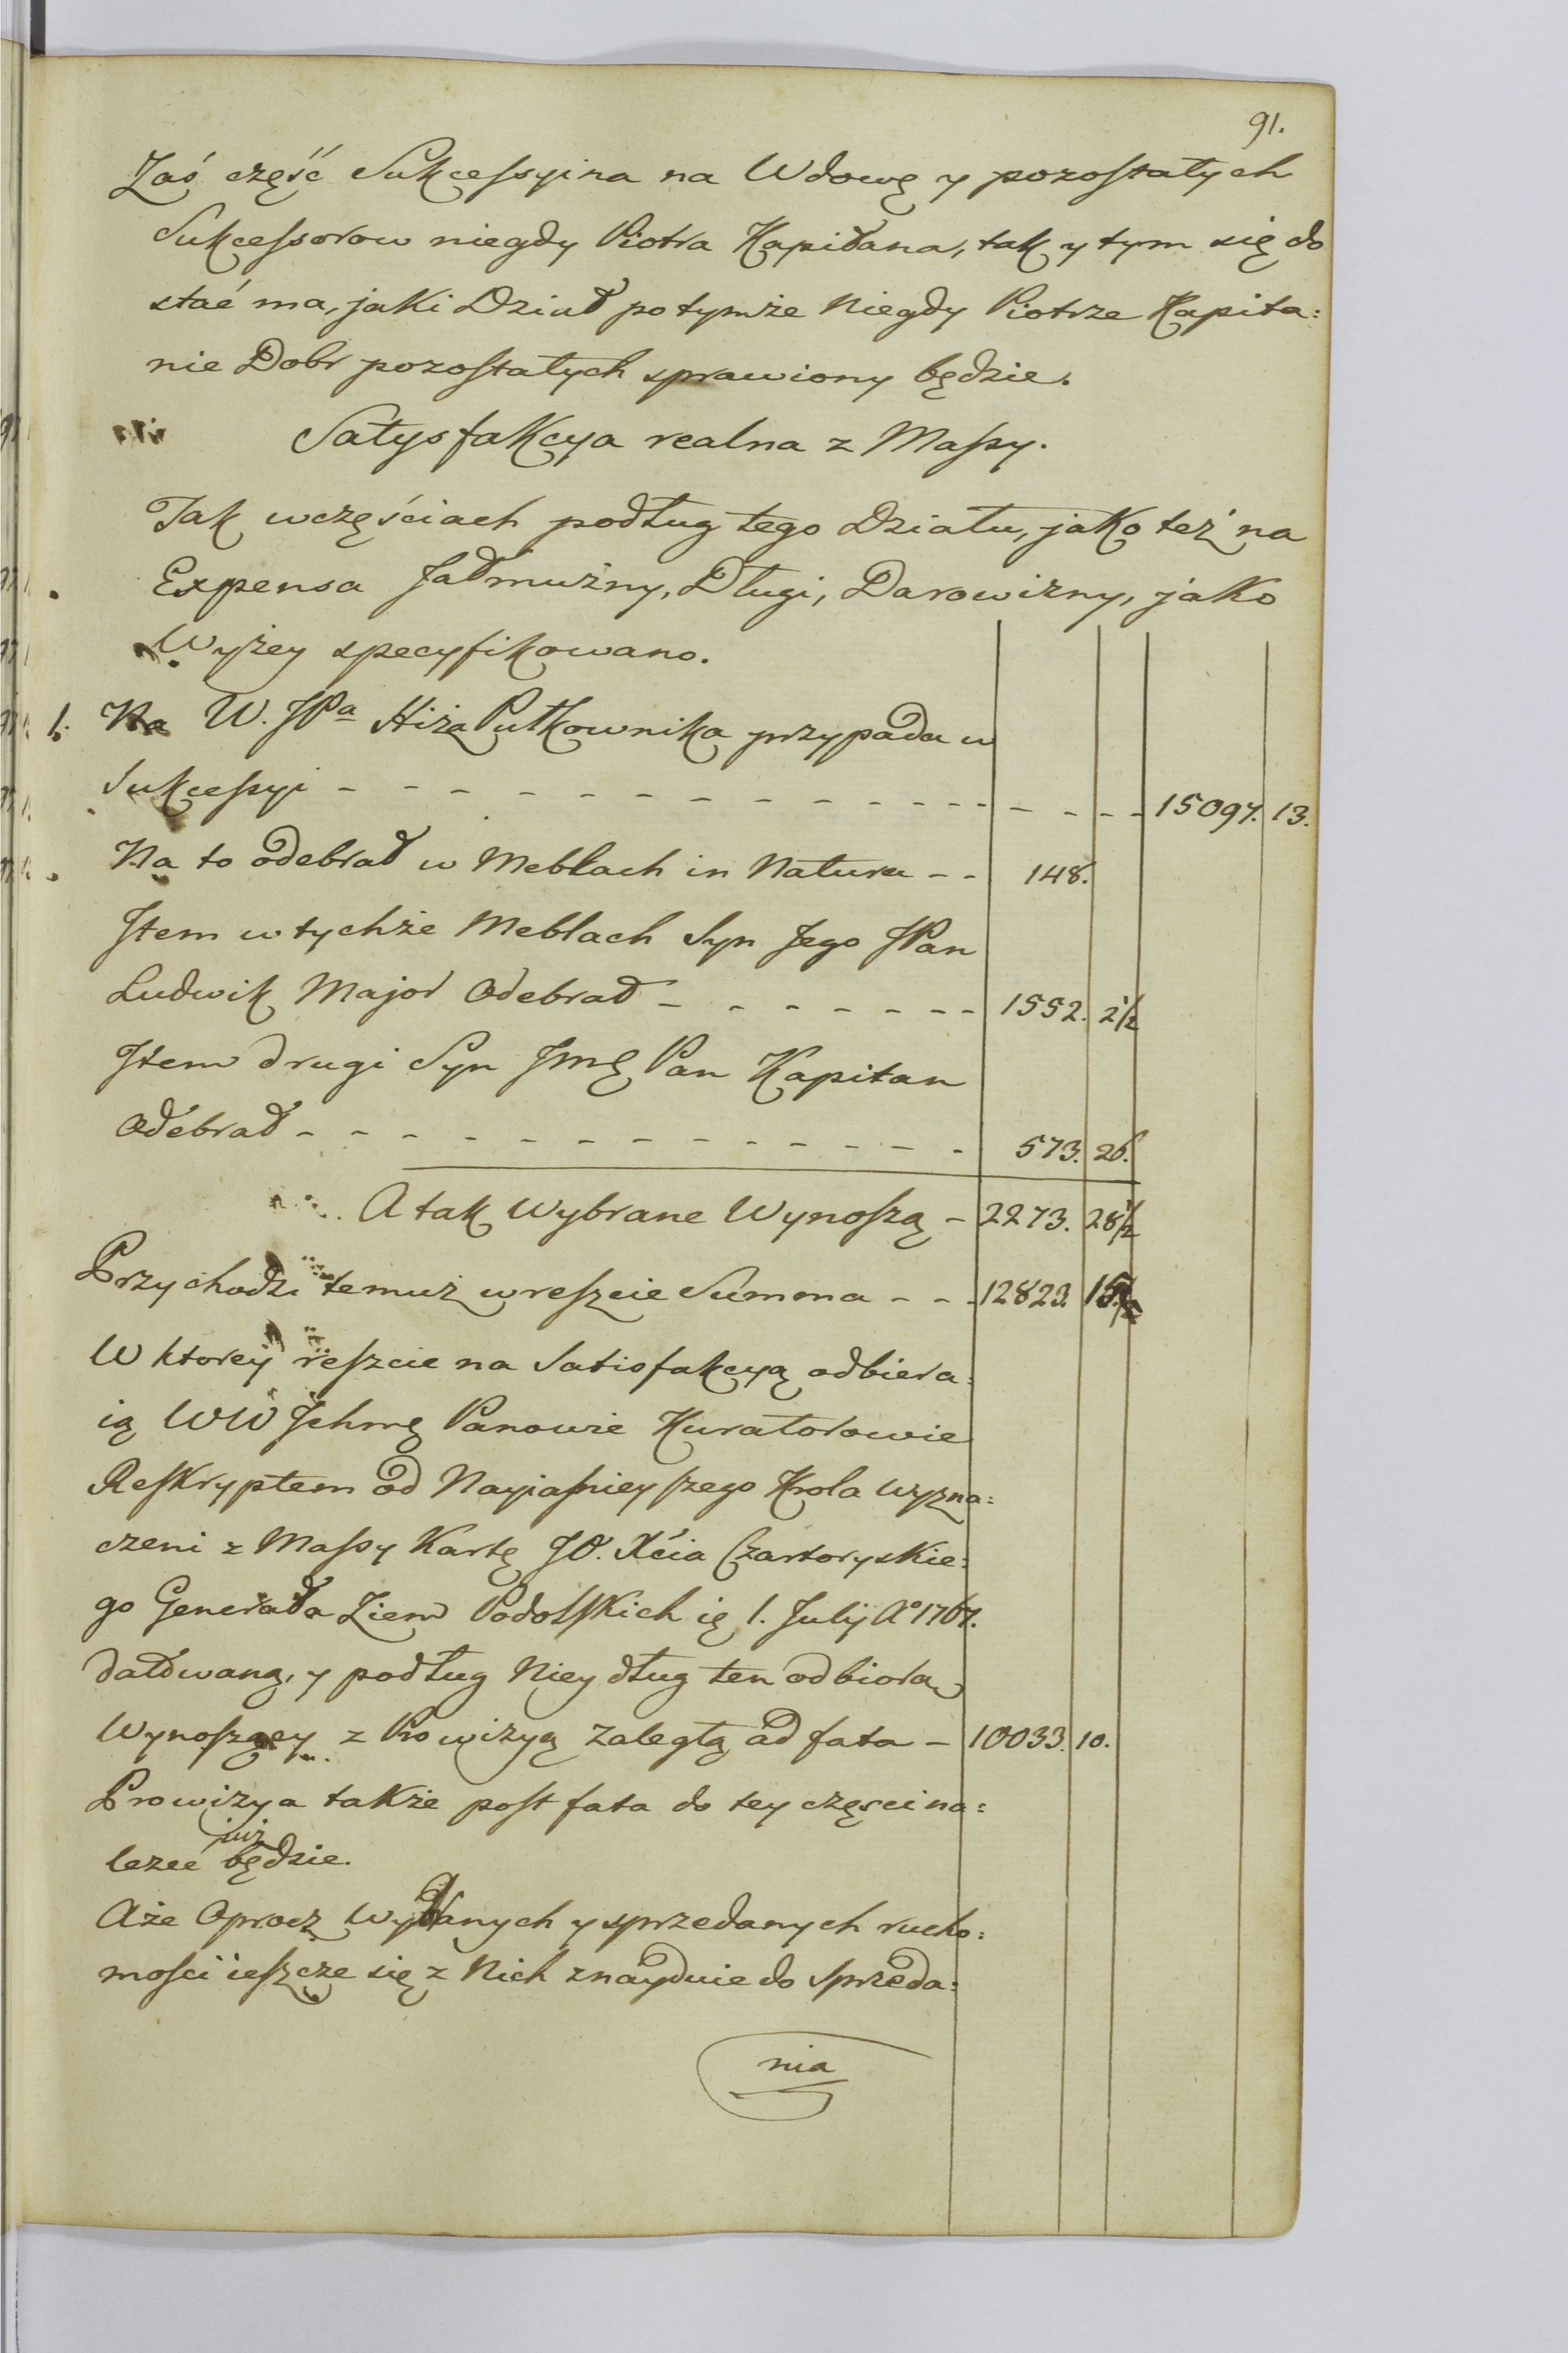 91.
Zaś część Sukcessyina na Wdowę y pozostałych
Sukcessorow niegdy Piotra Kapitana, tak y tym się do
stać ma, jaki Dział po tymże Niegdy Piotrze Kapita:
nie Dobr pozostałych sprawiony będzie.
Satysfakcya realna z Massy.
Tak wczęściach podług tego Działu, jako też na
Expensa Jałmużny, Długi, Darowizny, jako
Wyżey specyfikowano.
1. Na W. JPa Hiża Pułkownika przypada w
Sukcessyi - - - - - - - - - - - - - - - - 15097. 13.
Na to odebrał w Meblach in Natura - - 148.
Item w tychże Meblach Syn Jego JPan
Ludwik Major Odebrał - - - - - - - 1552. 2 1/2
Item drugi Syn Jmę Pan Kapitan
Odebrał - - - - - - - - - - - - - 573. 26.
A tak Wybrane Wynoszą - 2273. 28 1/2
Przychodzi temuż wreszcie Summa - - - 12823. 15 1/2
W ktorey reszcie na Satisfakcyą odbiera:
ią WW Jchmę Panowie Kuratorowie
Reskryptem od Nayiasnieyszego Krola Wyzna:
czeni z Massy Kartę JO. Xćia Czartoryskie:
go Generała Ziem Podolskich ię 1. Julij Ao 1767.
datowaną, y podług Niey dług ten odbiorą
Wynoszący z Prowizyą zaległą ad fata - 10033. 10.
Prowizya także post fata do tey częsci na:
lezeć już będzie.
Aże Oprocz Wybranych y sprzedanych rucho:
mosci ieszcze się z Nich znayduie do Sprzeda:
nia